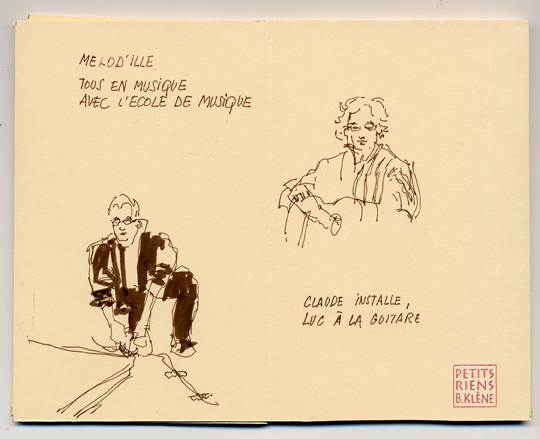 MELOD'ILLE
TOUS EN MUSIQUE
AVEC L'ECOLE DE MUSIQUE
CLAUDE INSTALLE,
LUC À LA GUITARE
PETITS
RIENS
B.KLÈNE